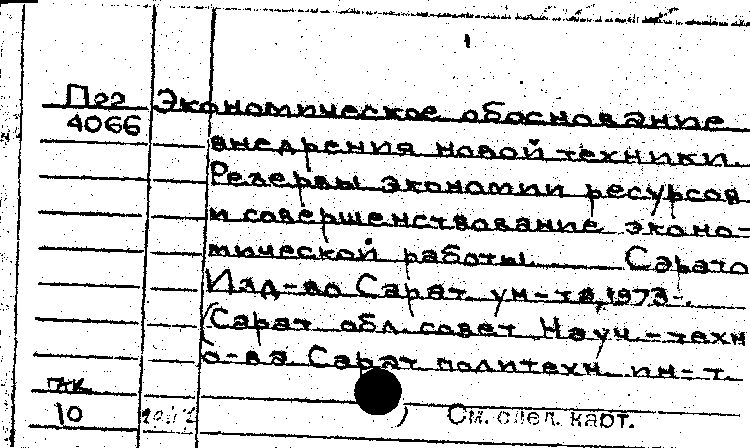 П22 Экономическое обоснование
4066 внедрения новой техники.
Резервы экономии ресурсов
и совершенствование эконо-
мической работы. Сарато
Изд-во Сарат. ун-та, 1973-.
(Сарат. обл. совет Науч.-техн
о-ва Сарат политехн. ин-т.
10 ) См. след. карт.